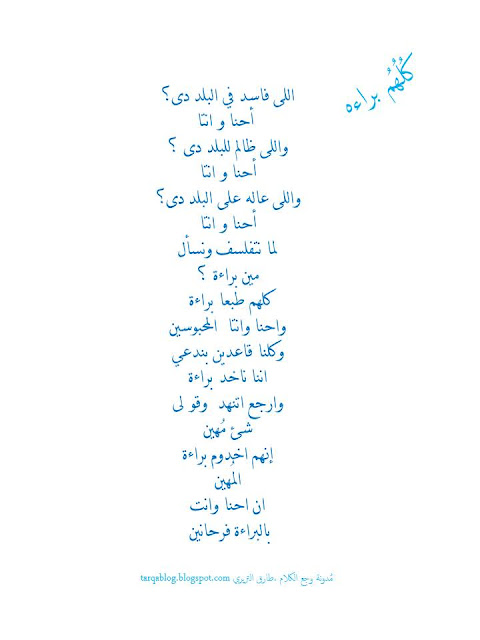 كُلُهُم براءه
اللى فاسد في البلد دى؟
أحنا و انتا
واللى ظالم للبلد دى ؟
أحنا و انتا
واللى عاله على البلد دى؟
أحنا و انتا
لما نتفلسف ونسأل
مين براءة ؟
كلهم طبعا براءة
واحنا وانتا المحبوسين
وكلنا قاعدين بندعي
اننا ناخد براءة
وارجع اتنهد وقولى
شئ مُهين
إنهم اخدوم براءة
المُهين
ان احنا وانت
بالبراءة فرحانين
مُدونة وجع الكلام ،طارق التريزي tarqablog.blogspot.com